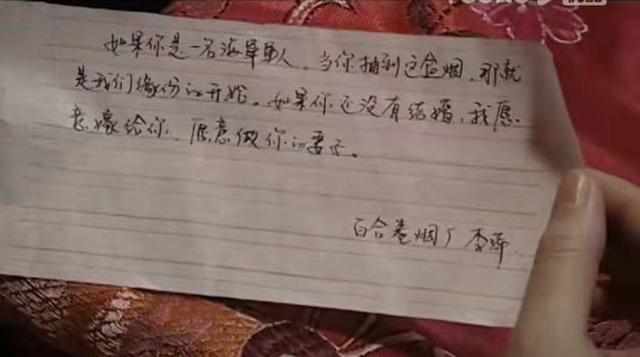 如果你是一名海军军人,当你抽到这盒烟,那就
是我们缘份的开始。如果你还没有结婚,我愿
意嫁给你,愿意做你的妻子。
百合卷烟厂 李